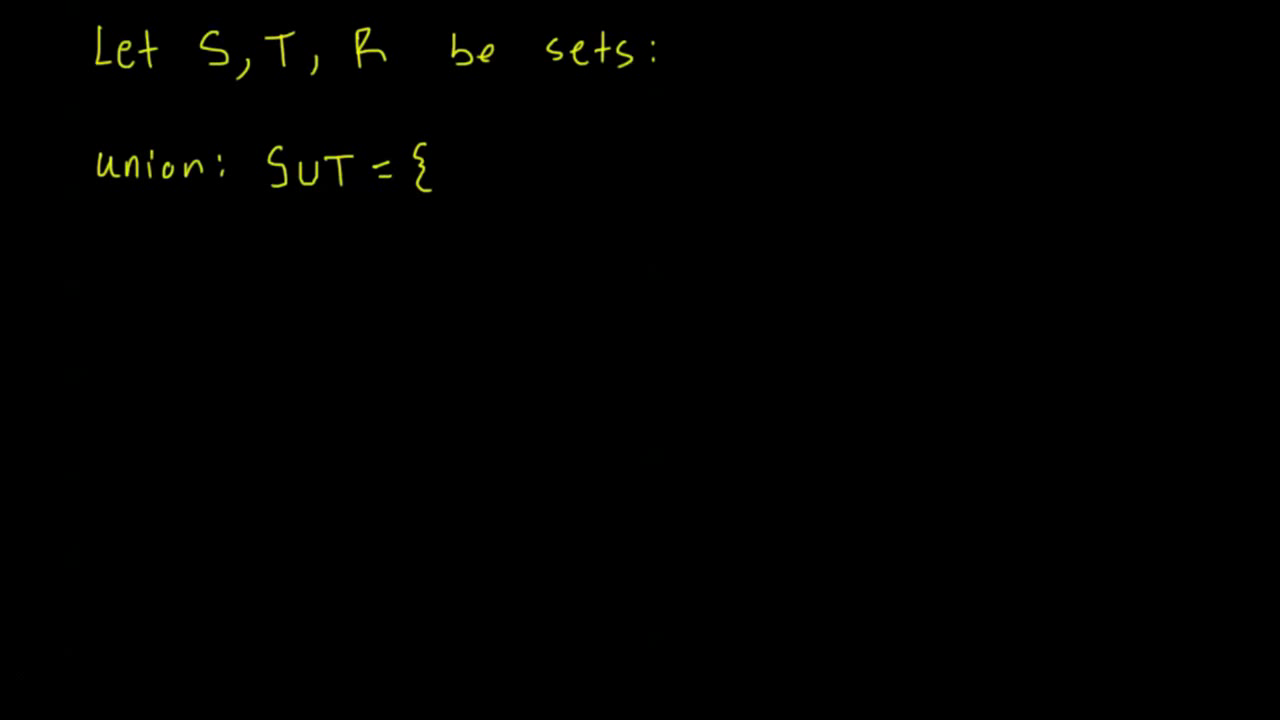 Let S, T, R be sets:
union: S∪T = {